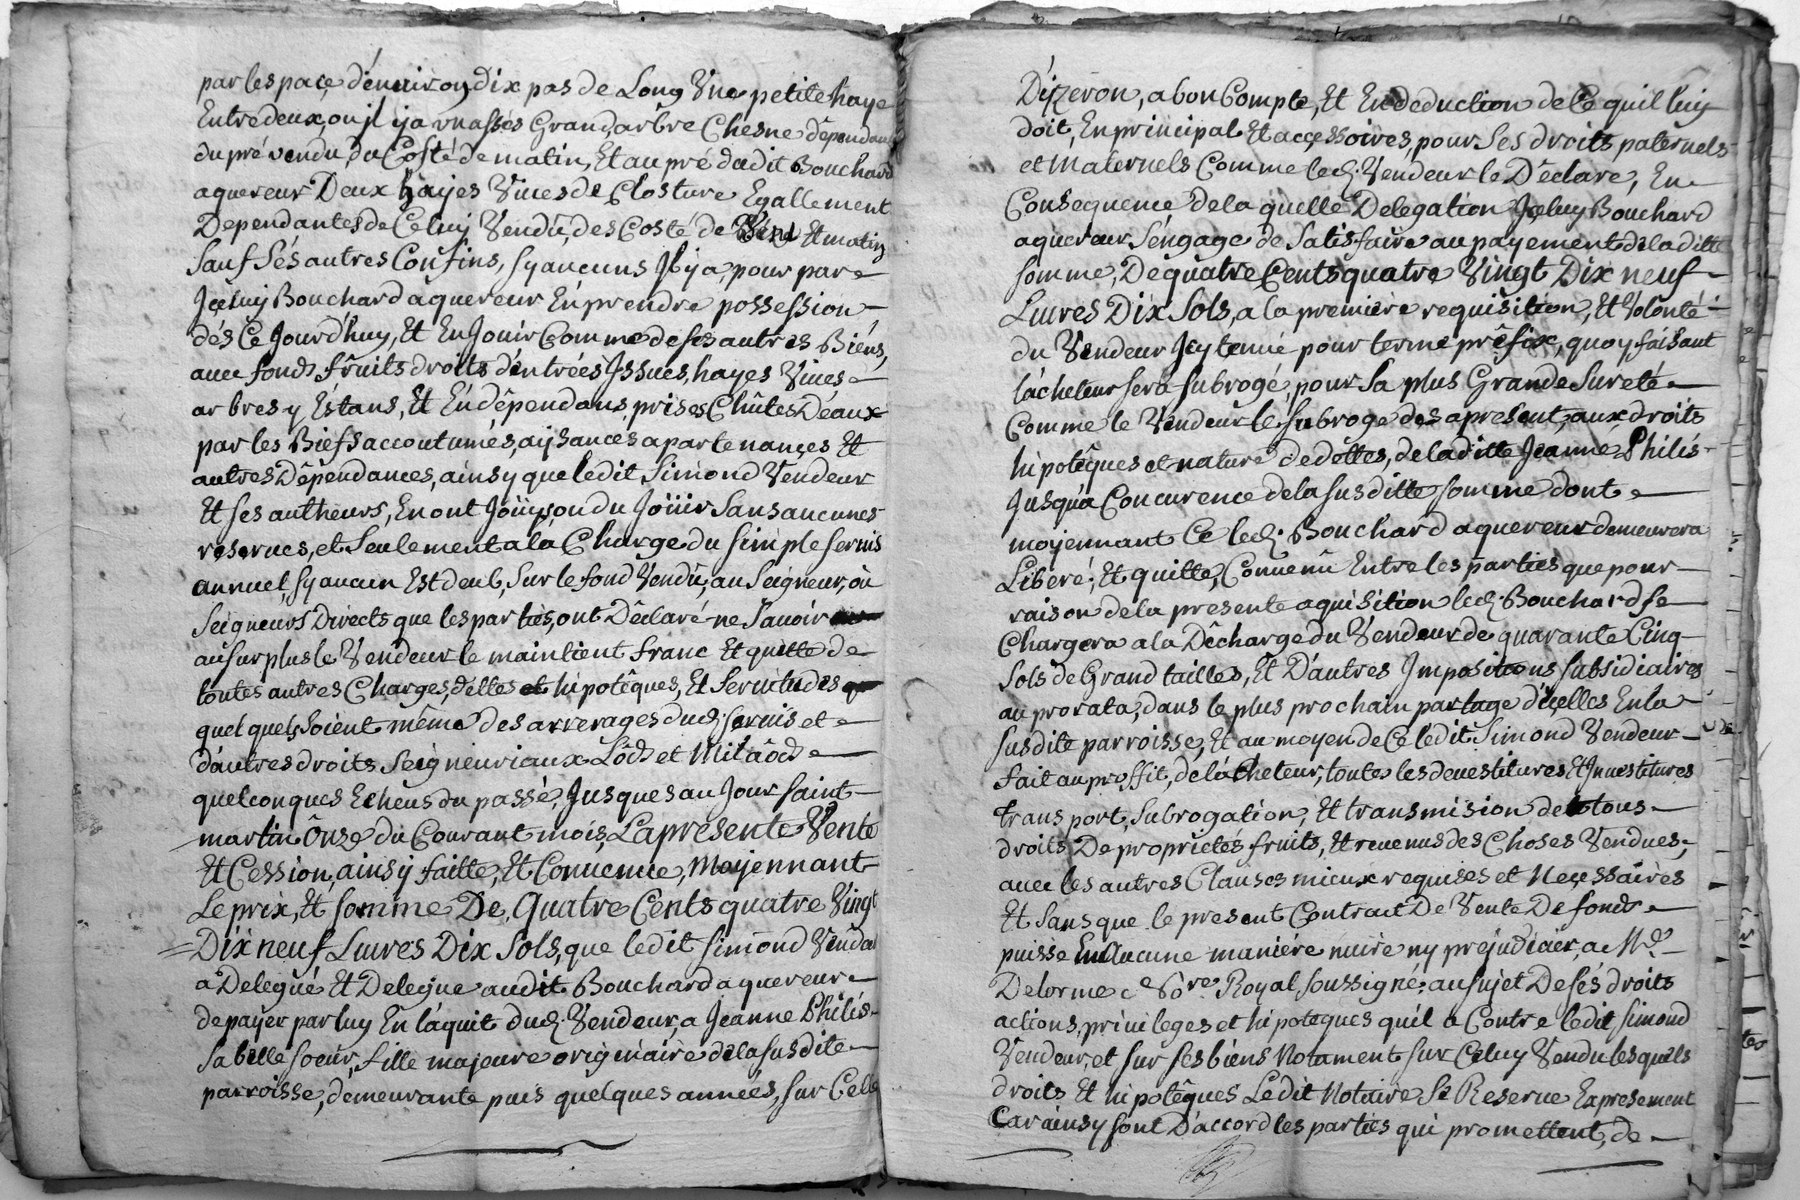 par lespace d'énuiron Dix pas de Long Vne petite haye
Entredeux, ou jl ya vn assés Grand, arbre Chesne dépendan
du pré vendu, du Costé de matin, Et au pré dudit Bouchard
aquereur Deux hayes Viues de Closture Egallement
Dependantes de Celuy Vendû, des Costé de Et matin
Sauf Sés autres Confins, sy aucuns Jl y a, pour par
Jçeluy Bouchard aquereur En prendre possession
dés Ce Jourd'huy, Et En Jouir Comme de ses autres Biéns,
auec fonds fruits droits d'éntrées Jssues, hayes Viues
arbres y Éstans, Et En dépendans, prises Chûtes Déaux
par les Biefs accoutumés, aisances apartenançes Et
autres Dépendances, ainsy que ledit Simond Vendeur
Et ses autheurs, En ont Joüy ou du Joüir Sans aucunes
reserues, et Seulement a la Charge du simple seruis
annuel, sy aucun Est deub, Sur le fond Vendû, au Seigneur, ou
Seigneurs Directs que les parties, ont Déclaré ne Sauoir
au surplus le Vendeur le maintient franc Et quitte de
toutes autres Charges, déttes et hipotêques, Et Seruitudes
quelquels soient même des arrerages dud. seruis et
d'autres droits Seigneuriaux Lôds et Milaôds
quelconques Echeus du passé, Jusques au Jour saint
martin Ônze du Courant mois, La présente Vente
Et Cession, ainsÿ faitte, Et Conuenue, Moyennant
Le prix, Et somme De, Quatre Cents quatre Vingt
Dix neuf Liures Dix Sols, que ledit Simond Vendeu
a Delegué Et Delegue audit Bouchard aquereur
de payer par luy En l'áquit dud. Vendeur, a Jeanne Philis
sa belle soeur, fille majeure originaire de la susdite
parroisse, demeurante puis quelques années, sur Celle
D'izeron, a bon Compte, Et En deduction de Ce quil luy
doit, En principal Et accessoires, pour Ses droits paternels
et Maternels Comme led. Vendeur le Déclare, En
Consequence de la quelle Delegation Jçeluy Bouchard
aquereur s'éngage de Satisfaire au payement de la ditte
somme, De quatre Cents quatre Vingt Dix neuf
Liures Dix Sols, a la premiere requisition, Et Volonté
du Vendeur Jcy tenüe pour terme préfixe, quoy faisant
l'ácheteur sera subrogé, pour Sa plus Grande Sureté
Comme le Vendeur le subroge des apresent, aux droits
hipotêques et nature de déttes, de la ditte Jeanne Philis
Jusqu'a Concurence de la susditte somme dont
moyennant Ce led. Bouchard aquereur demeurera
Liberé, Et quitte, Conuenû Entre les parties que pour
raison de la presente aquisition led. Bouchard se
Chargera a la Décharge du Vendeur de quarante Cinq
Sols de Grand tailles, Et D'autres Jmpositions subsidiaires
au prorata, dans le plus prochain partage d'içelles En la
susdite parroisse, Et au moyen de Ce ledit Simond Vendeur
fait au proffit, de l'ácheteur, toutes les deuestitures, Et Jnuestitures
transport, Subrogation, Et transmision de tous
droits De proprietés fruits, Et reuenus des Choses Vendues,
auec les autres Clauses mieux requises et Neçessaires
Et Sans que le present Contract De Vente De fonds
puisse En Aucune maniére nuire ny prejudiçier, a Me.
Delorme Royal soussigné, au sujet De sés droits
actions, priuileges et hipoteques qu'il a Contre ledit Simond
Vendeur, et sur ses biens Notament sur Celuy Vendu lesquels
droits Et hipotêques Ledit Notaire Se Reserue Expresement
Car ainsy sont D'accord les parties qui promettent, de